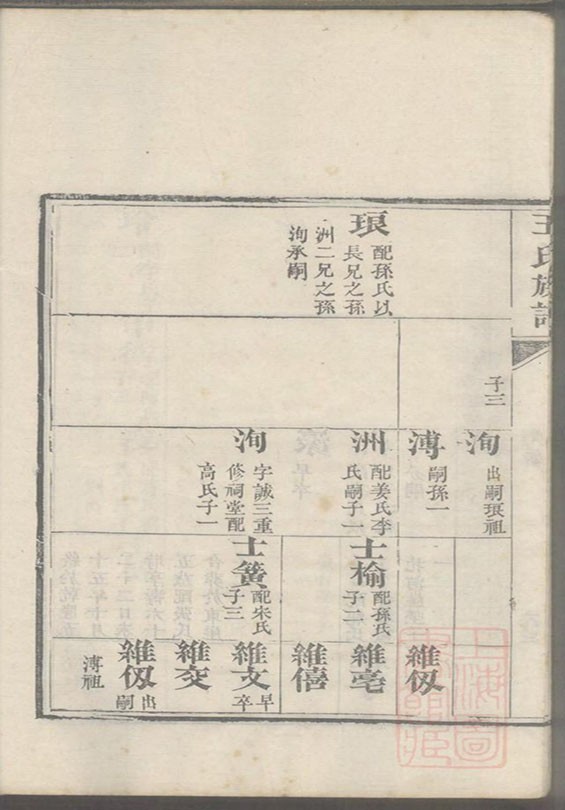 王氏族譜
子三
琅
配孫氏以
長兄之孫
洲二兄之孫
洵承嗣
洵
出嗣琅祖
漙
嗣孫一
洲
配姜氏李
氏嗣子一
洵
字誠三重
修祠堂配
高氏子一
士榆
配孫氏
子二
士簧
配朱氏
子三
維伋
維亳
維僖
維文
早
卒
維交
維伋
出
嗣
漙祖